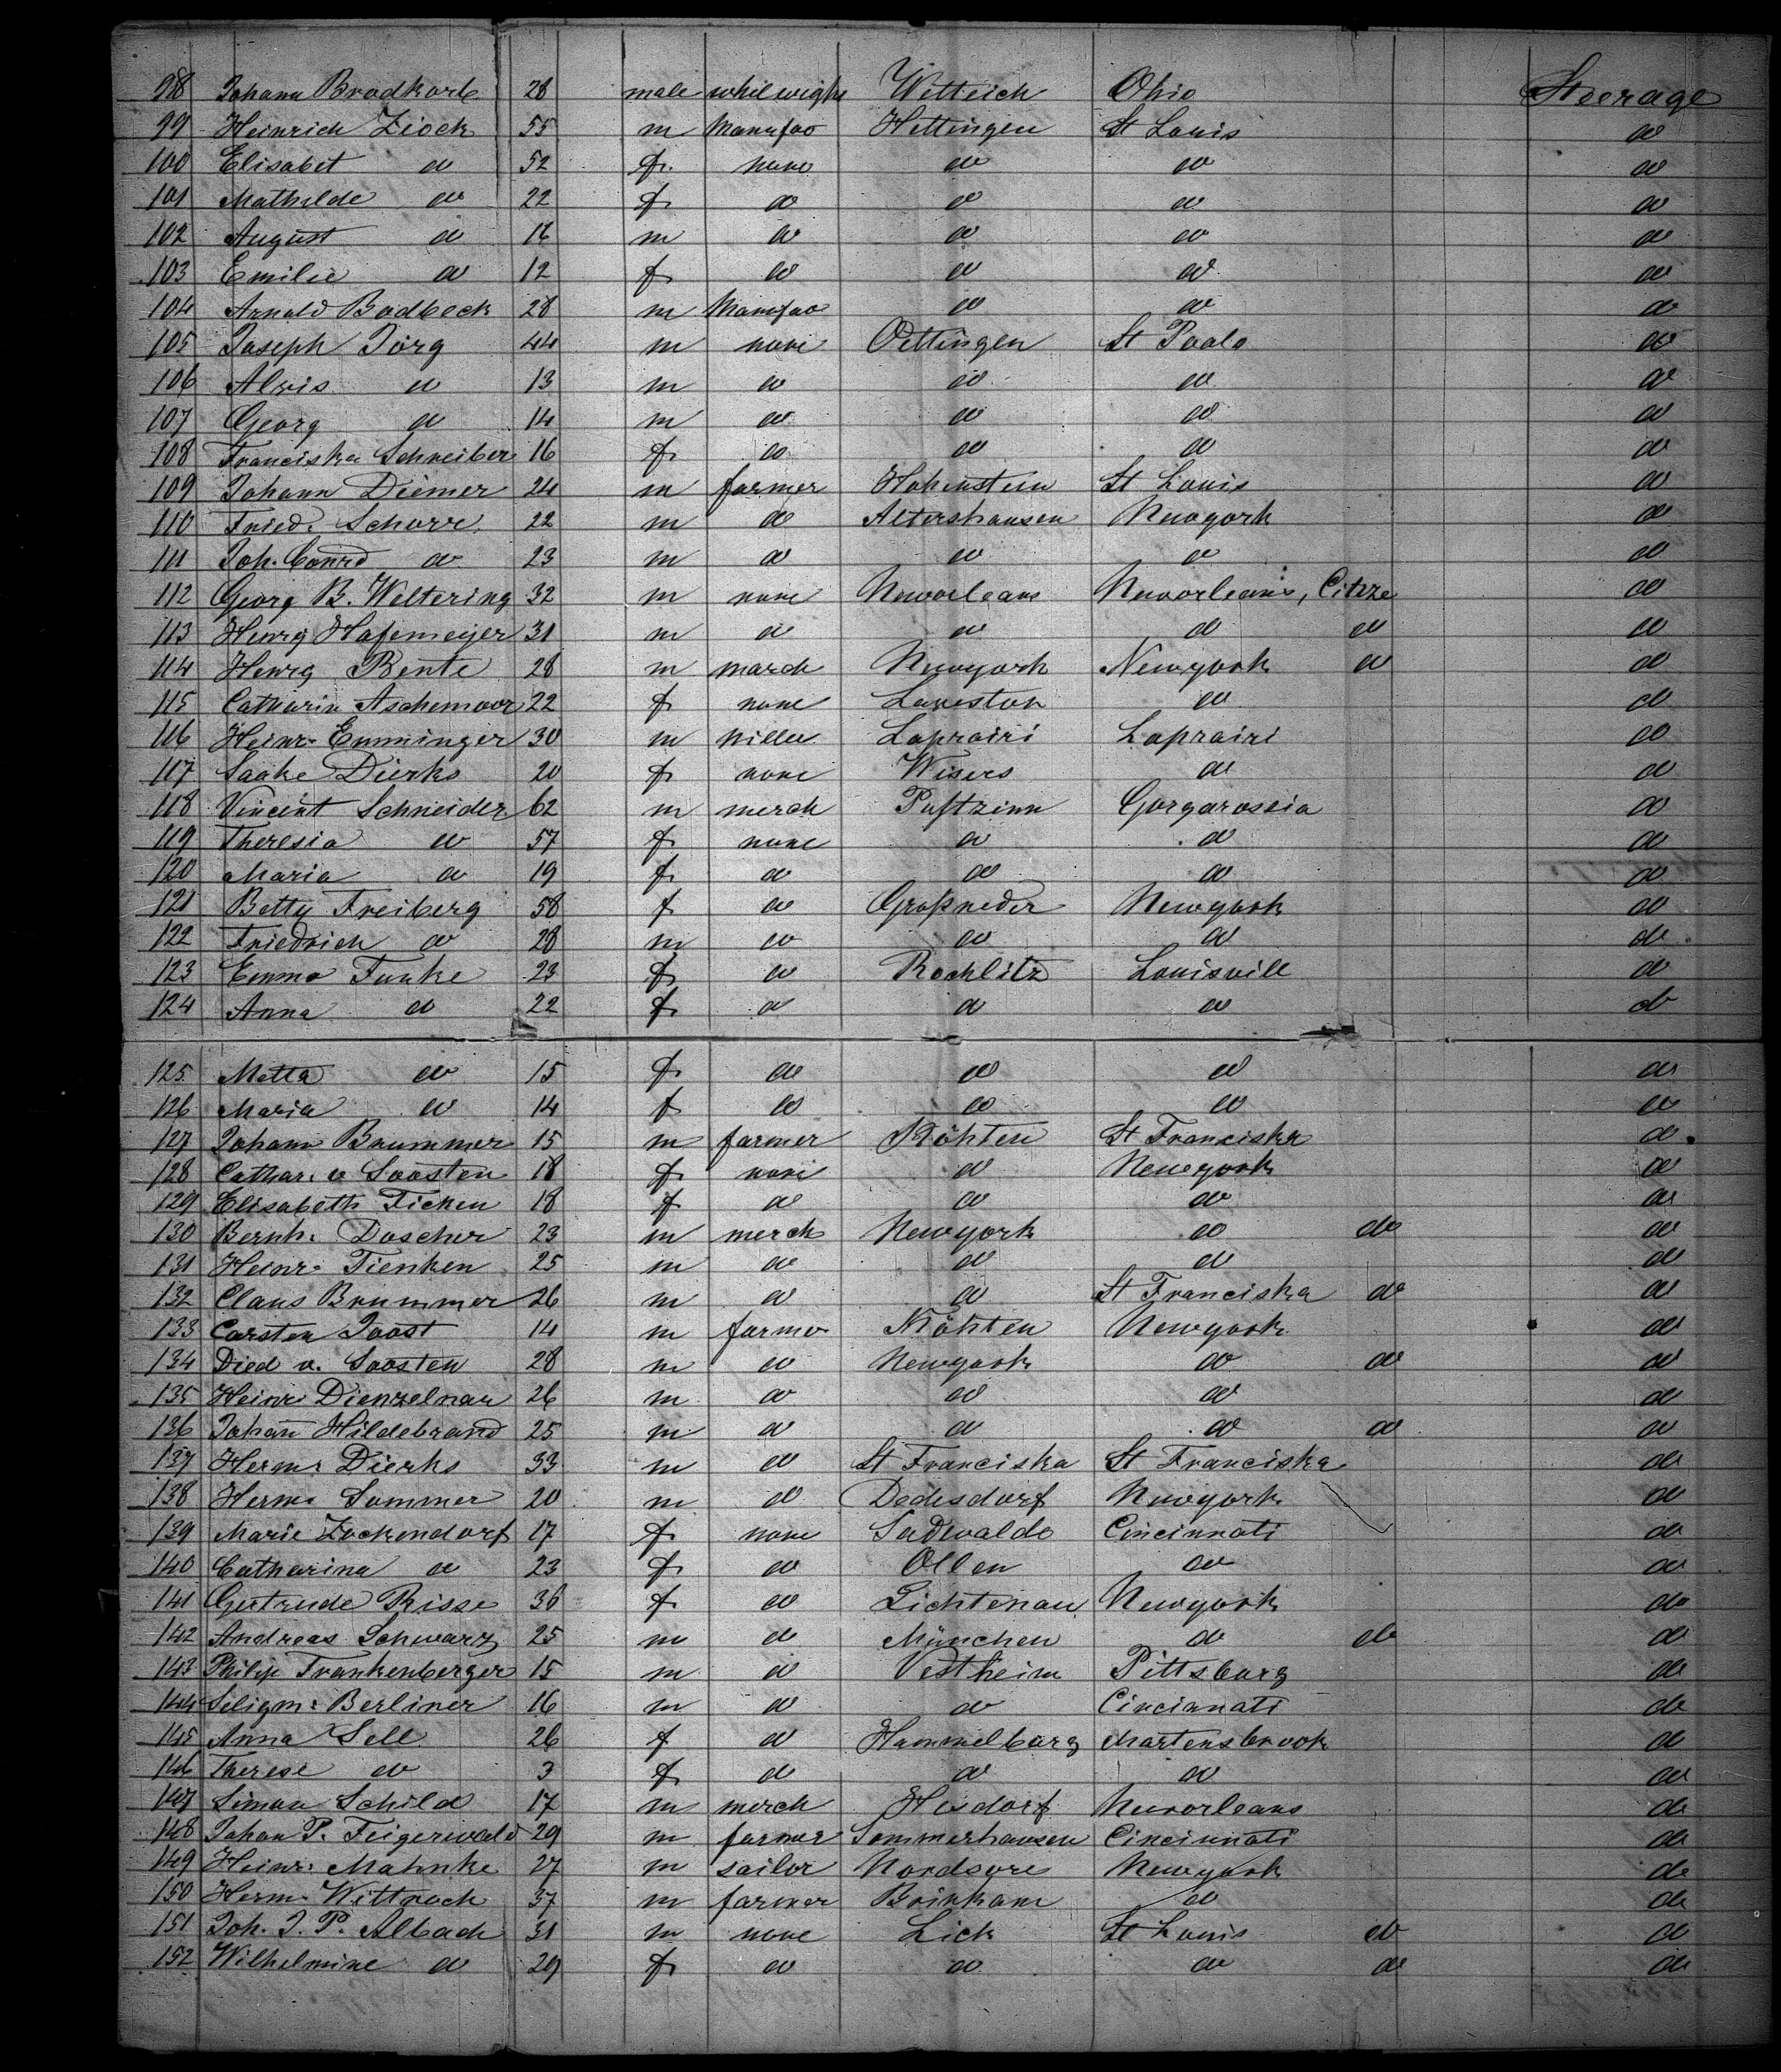 98 Johann Brodkorb 28 male whilwight Witteich Ohio Steerage
99 Heinrich Zioch 55 m Manufac Hettingen St Louis do
100 Elisabet do 52 f. none do do do
101 Mathilde do 22 f do do do do
102 August do 16 m do do do do
103 Emilie do 12 f do do do do
104 Arnold Badbeck 28 m Manufac do do do
105 Joseph Jörg 44 m none Oettingen St Poalo do
106 Alvis do 13 m do do do do
107 Georg do 14 m do do do do
108 Franciska Schreiber 16 f do do do do
109 Johann Diemer 24 m farmer Hohenstein St Louis do
110 Fried. Schorr 22 m do Altershausen Newyork do
111 Joh. Conrd do 23 m do do do do
112 Georg B. Weltering 32 m none Neworleans Neworleans, Citize do
113 Henry Hafemeijer 31 m do do do do do
114 Henry Bente 28 m march Newyork Newyork do do
115 Catharin Aschemoor 22 f none Laveston do do
116 Heinr. Emminger 30 m miller Laprairi Laprairi do
117 Saake Dierks 20 f none Wisers do do
118 Vincent Schneider 62 m merch Puftzinn Gorgarossia do
119 Theresia do 57 f none do do do
120 Maria do 19 f do do do do
121 Betty Freiberg 58 f do Großneder Newyork do
122 Friedrich do 28 m do do do do
123 Emma Funke 23 f do Rochlitz Louisvill do
124 Anna do 22 f do do do do
125 Metta do 15 f do do do do
126 Maria do 14 f do do do do
127 Johann Brummer 15 m farmer Köhten St Franciska do
128 Cathar. v Soosten 18 f none do Newyork do
129 Elisabeth Ficken 18 f do do do do
130 Bernh. Doscher 23 m merch Newyork do do do
131 Heinr. Tienken 25 m do do do do
132 Claus Brummer 26 m do do St Franciska do do
133 Carsten Joost 14 m farmer Köhten Newyork do
134 Died v. Soosten 28 m do Newyork do do do
135 Heinr Dienzelman 26 m do do do do
136 Johan Hildebrand 25 m do do do do do
137 Herm. Dierks 33 m do St Franciska St Franciska do
138 Herm. Sommer 20 m do Dedesdorf Newyork do
139 Marie Zockendorf 17 f none Sudwalde Cincinnati do
140 Catharina do 23 f do Ollen do do
141 Gertrude Risse 36 f do Lichtenau Newyork do
142 Andreas Schwarz 25 m do München do do do
143 Philip Frankenberger 15 m do Vestheim Pittsburg do
144 Seligm. Berliner 16 m do do Cincinnati do
145 Anna Sell 26 f do Hammelburg Martensbrook do
146 Therese do 3 f do do do do
147 Simon Schild 17 m merch Hesdorf Neworleans do
148 Johan P. Feigerwald 29 m farmer Sommerhausen Cincinnati do
149 Heinr. Mahnke 27 m sailor Nordsore Newyork do
150 Herm. Wittrock 37 m farmer Brinkam do do
151 Joh. J. P. Albach 31 m none Lick St Louis do do
152 Wilhelmine do 29 f do do do do do